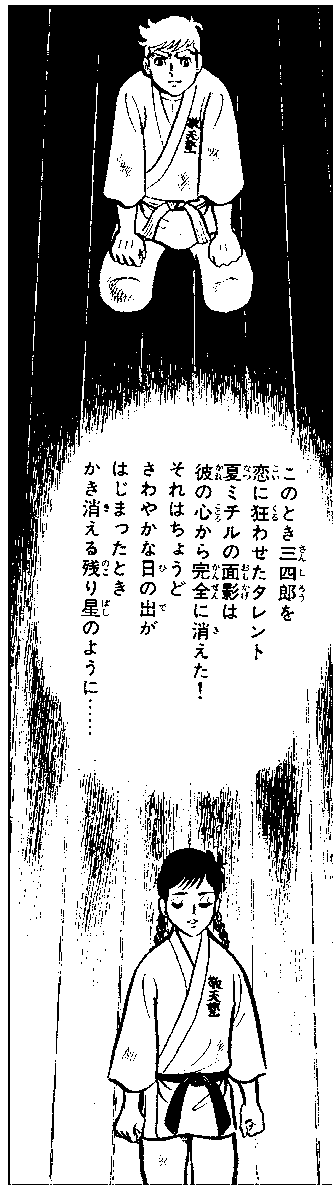 敬天塾
このとき三四郎を
恋に狂わせたタレント
夏ミチルの面影は
彼の心から完全に消えた！
それはちょうど
さわやかな日の出が
はじまったとき
かき消える残り星のように……
敬天塾